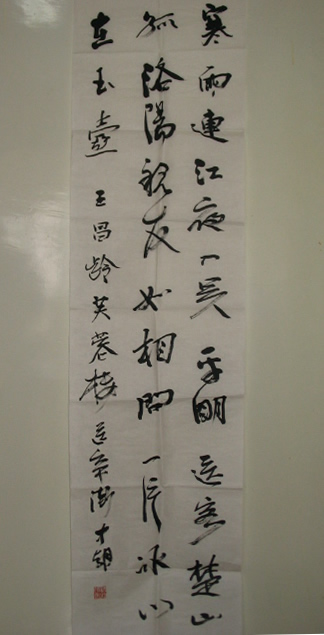 寒雨連江夜入吳平明送客楚山
孤洛陽親友如相問一片冰心
在玉壺 王昌齡芙蓉樓送辛漸 才